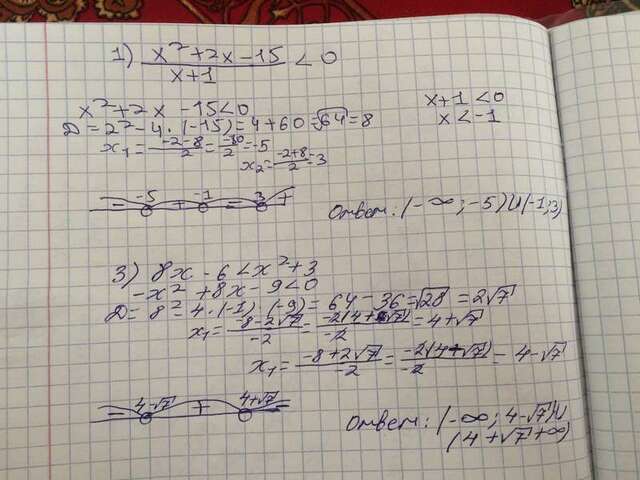 1) x²+2x-15 / x+1 < 0
x²+2x-15<0
x+1<0
x<-1
D=2²-4·(-15)=4+60=√64=8
x₁= -2-8 / 2 = -10 / 2 =-5
x₂= -2+8 / 2 =3
-5 + -1 - 3
Ответ: (-∞;-5)∪(-1;3)
3) 8x-6<x²+3
-x²+8x-9<0
D=8²-4·(-1)·(-9)=64-36=√28=2√7
x₁= -8-2√7 / -2 = -2(4+√7) / -2 =4+√7
x₁= -8+2√7 / -2 = -2(4-√7) / -2 =4-√7
- 4-√7 + 4+√7 -
Ответ: (-∞;4-√7)∪
(4+√7;+∞)